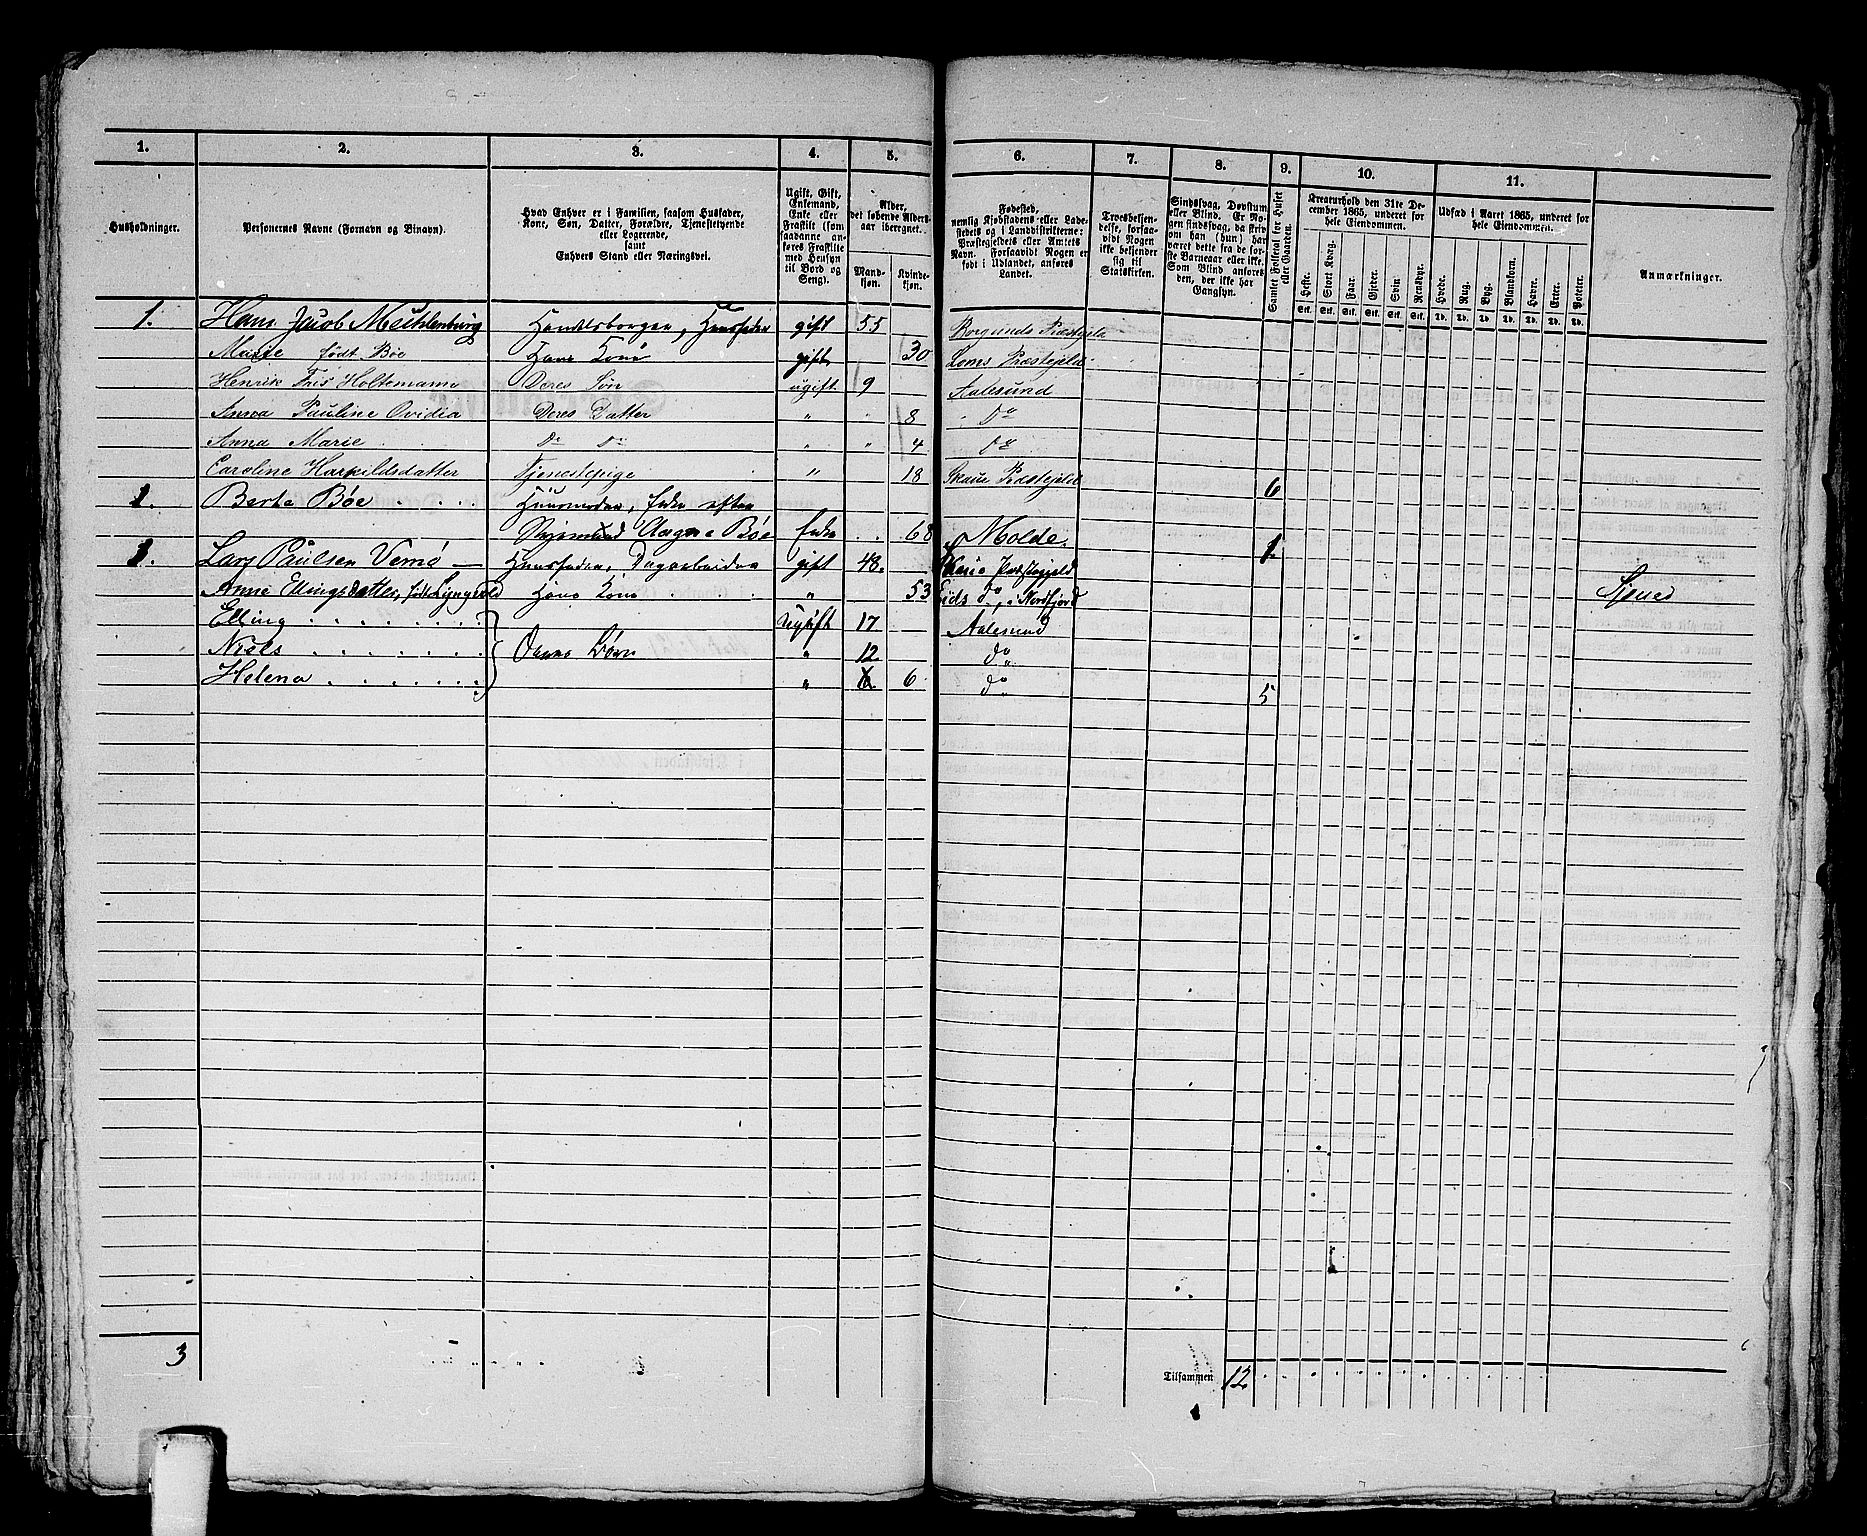 1. 2. 3. 4. 5. 6. 7. 8. 9. 10. 11.
Husholdninger.
Personernes Navne (Fornavn og Binavn).
Hvad Enhver er i Familien, saasom Husfader,
Kone, Søn, Datter, Forældre, Tjenestetyende
eller Logerende,
samt
Enhvers Stand eller Næringsvei.
Ugift, Gift,
Enkemand,
Enke eller
Fraskilt (som
saadanne anføres
Fraskilte
med Hensyn
til Bord og
Seng).
Alder,
det løbende Alders-
aar iberegnet.
Mand-
kjøn.
Kvinde-
kjøn.
Fødested,
nemlig Kjøbstadens eller Lade-
stedets og i Landdistrikterne:
Præstegjeldets eller Amtets
Navn. Forsaavidt Nogen er
født i Udlandet, anføres
Landet.
Troesbekjen-
delse, forsaa-
vidt Nogen
ikke bekjender
sig til
Statskirken.
Sindssvag, Døvstum
eller Blind. Er No-
gen sindssvag, da skriv
om han (hun) har
været dette fra de før-
ste Barneaar eller ikke.
Som Blind anføres
den, der ikke har
Gangsyn.
Samlet Folketal for Huset
eller Gaarden.
Kreaturhold den 31te De-
cember 1865, underet for
hele Eiendommen.
Heste. Stort Kvæg. Faar. Gjeder. Svin. Rensdyr.
Udsæd i Aaret 1865, underet for
hele Eiendommen.
Hvede. Rug. Byg. Blandkorn. Havre. Erter. Poteter.
Anmærkninger.
Stk. Stk. Stk. Stk. Stk. Stk. Td. Td. Td. Td. Td. Td. Td.
1. Hans Jacob Mechlenburg Handelsborger, Huusfader gift 55 Borgunds Præstegjeld
Marie født Bøe Hans Kone gift 30 Loms Præstegjeld
Henrik Fris Holtemann Deres Søn ugift 9 Aalesund
Anna Pauline Ovidia Deres Datter " " 8 " Do
Anna Marie Do Do " " 4 Do
Caroline Harkildsdatter Tjenestepige " 18 Skaue Præstejeld 6
1. Berte Bøe Huusmoder, Enke efter
Aagne Bøe Enke 68 Molde. 1.
1. Lars Paulsen Vemø Huusfader, Dagarbeider gift 48. Præstegjeld
Anne Ellingsdatter, født Hans Kone " 53 Eids do, i Nordfjord
Elling Ugift 17 Aalesund
Niels Deres Børn " 12 do
Helena " 6 do 5
3
Tilsammen 12